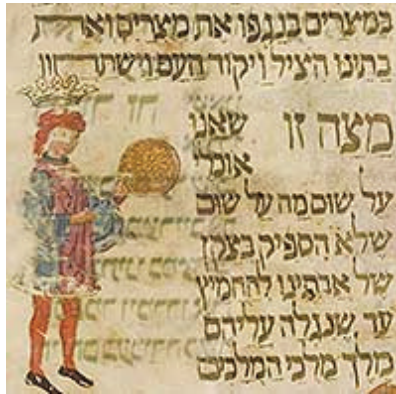 במצרים בנגפו את מצרים ואת
בתינו הציל ויקוד העם וישתחוו
מצה זו שאנו
אוכלי
על שום מה על שום
שלא הספיק בצקן
של אבותינו להחמיץ
עד שנגלה עליהם
מלך מלכי המלכים